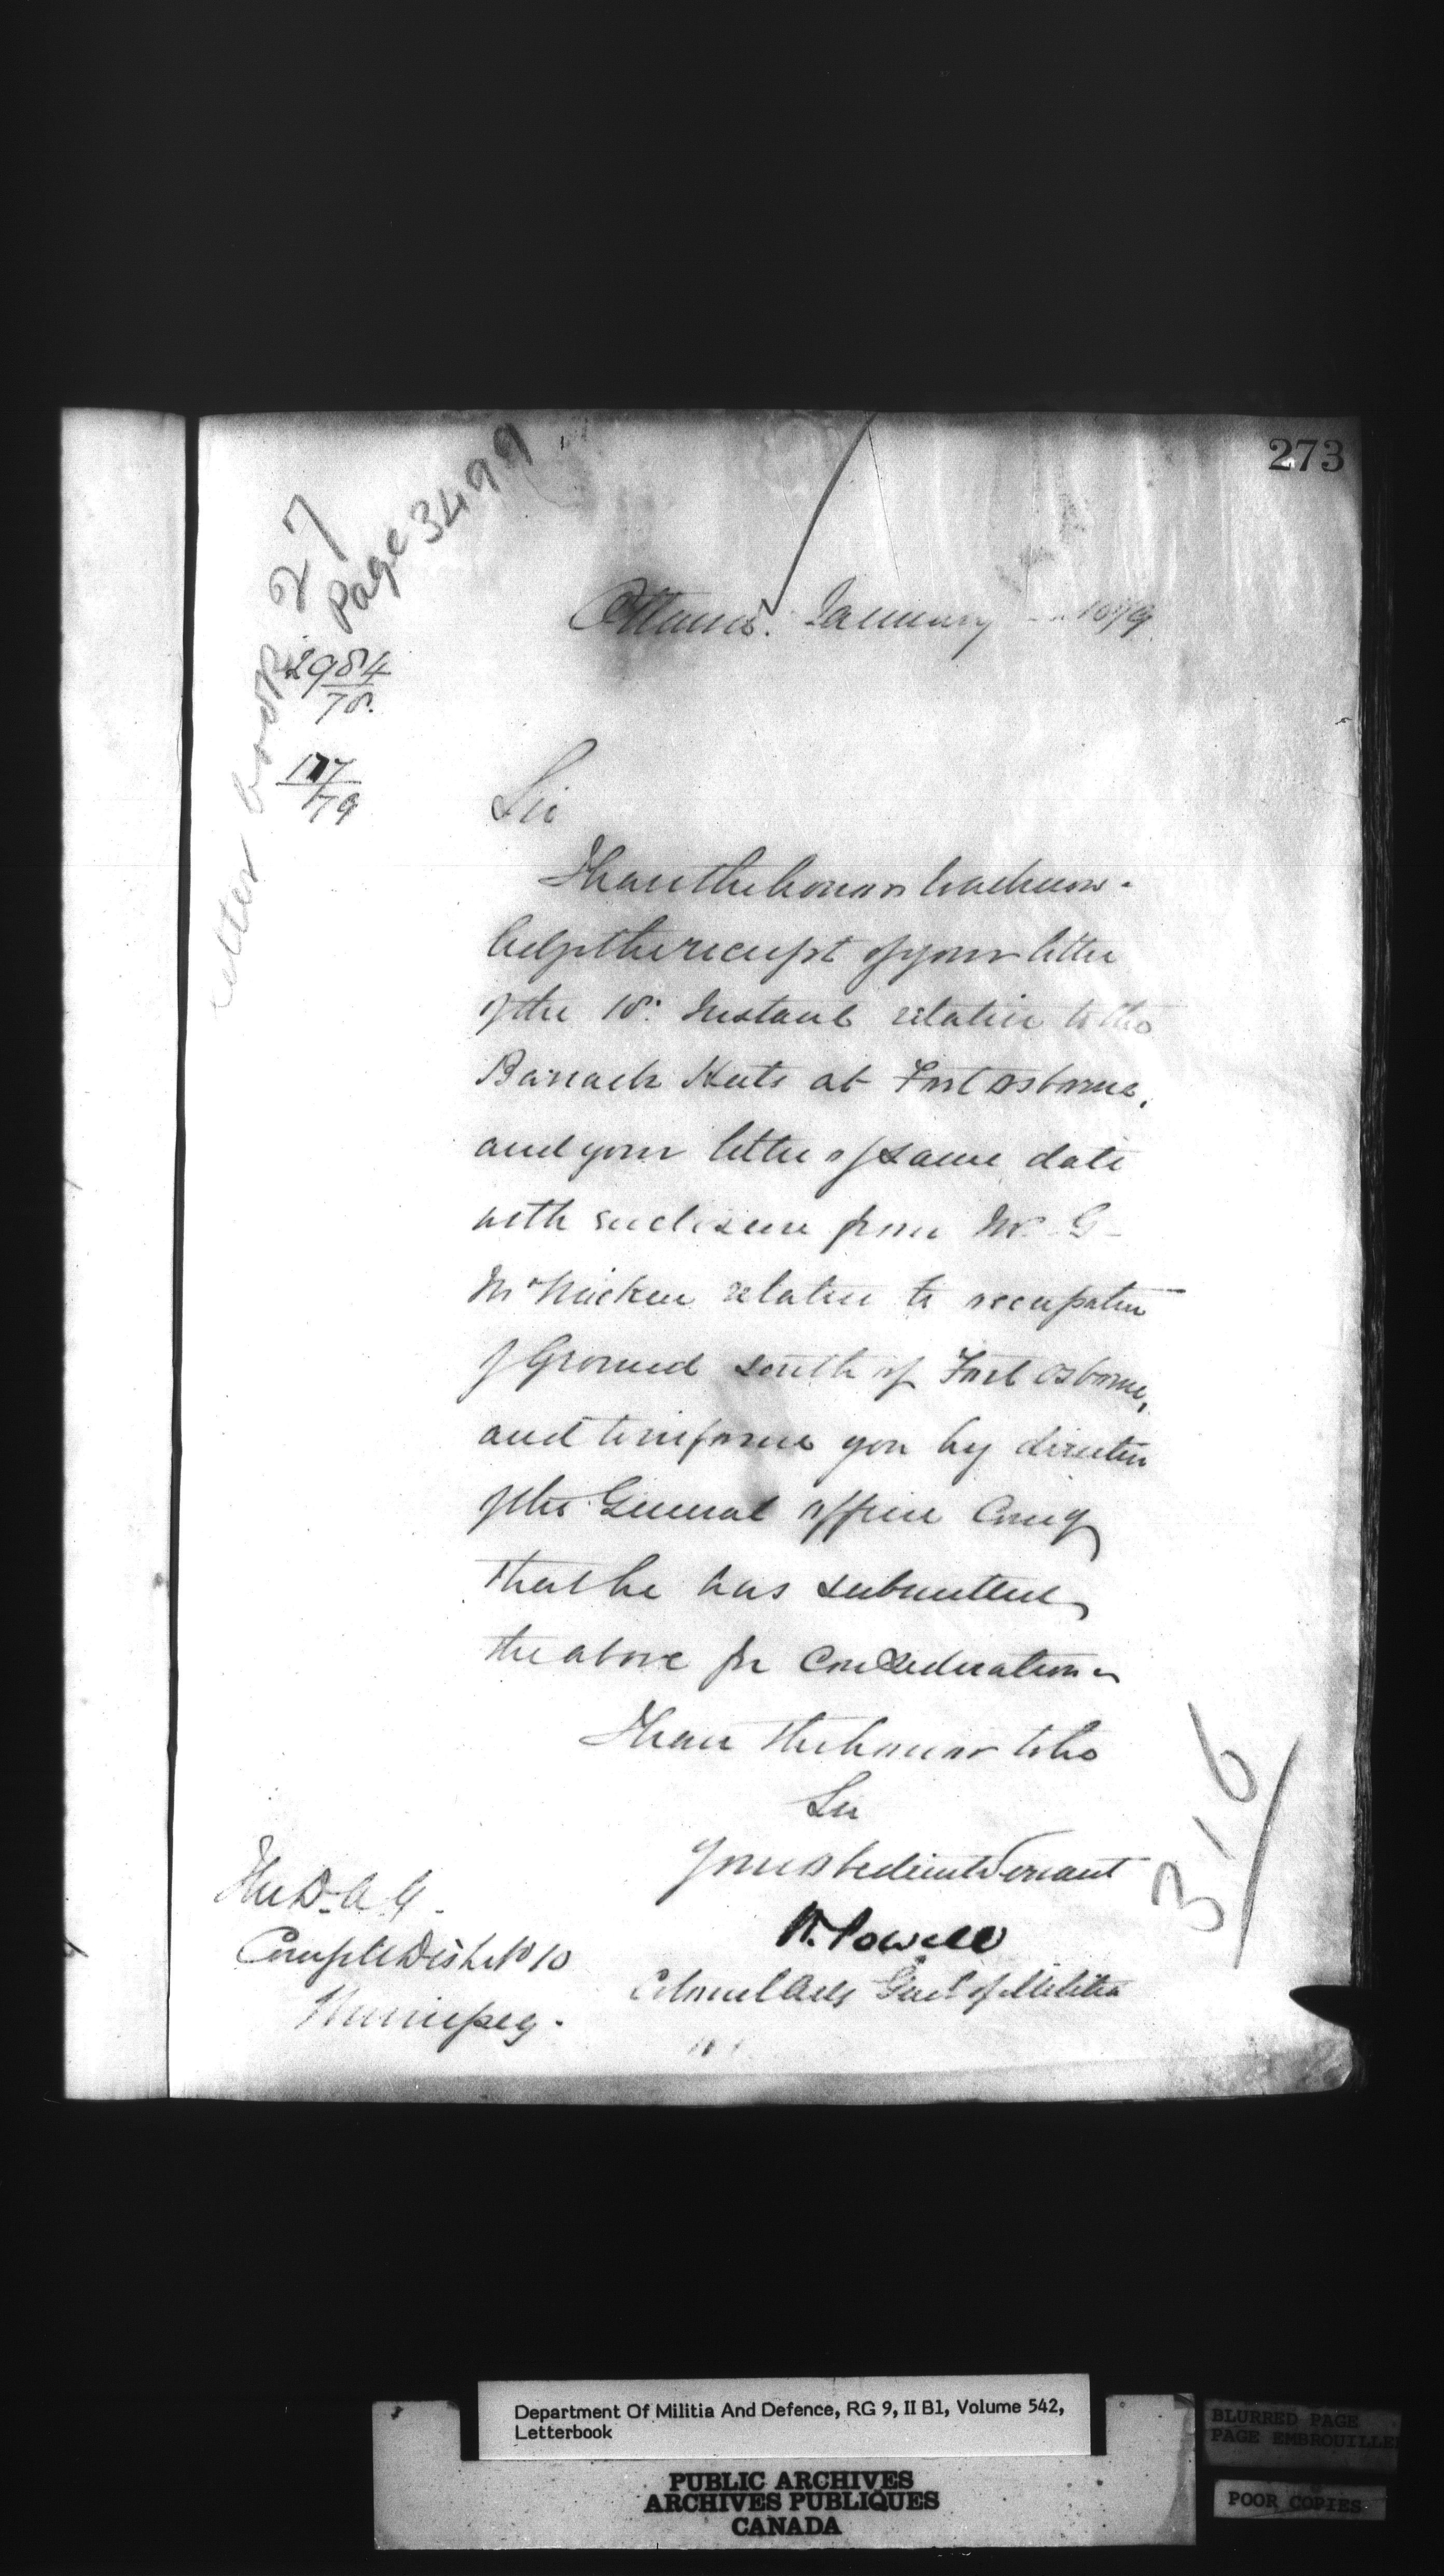 273
Letter book 27
Page 3499
2984
78.
177
79
Ottawa. January 1879
Sir
I have the honour to acknow-
ledge the receipt of your letter
of the 18th Instant relative to the
Barrack Huts at Fort Osborne,
and your letter of same date
with enclosure from Mr. G
McMicken relative to occupation
of Ground south of Fort Osborne,
and to inform you by direction
of the General Officer Comg
that he has submitted
the above for Consideration
I have the honour to be
Sir
Your obedient Servant
W. Powell
Colonel Adjt Genl of Militia
The D.A.G.
Comg Dist No 10
Winnipeg.
316
Department Of Militia And Defence, RG 9, II B1, Volume 542,
Letterbook
PUBLIC ARCHIVES
ARCHIVES PUBLIQUES
CANADA
BLURRED PAGE
PAGE EMBROUILLE
POOR COPIES